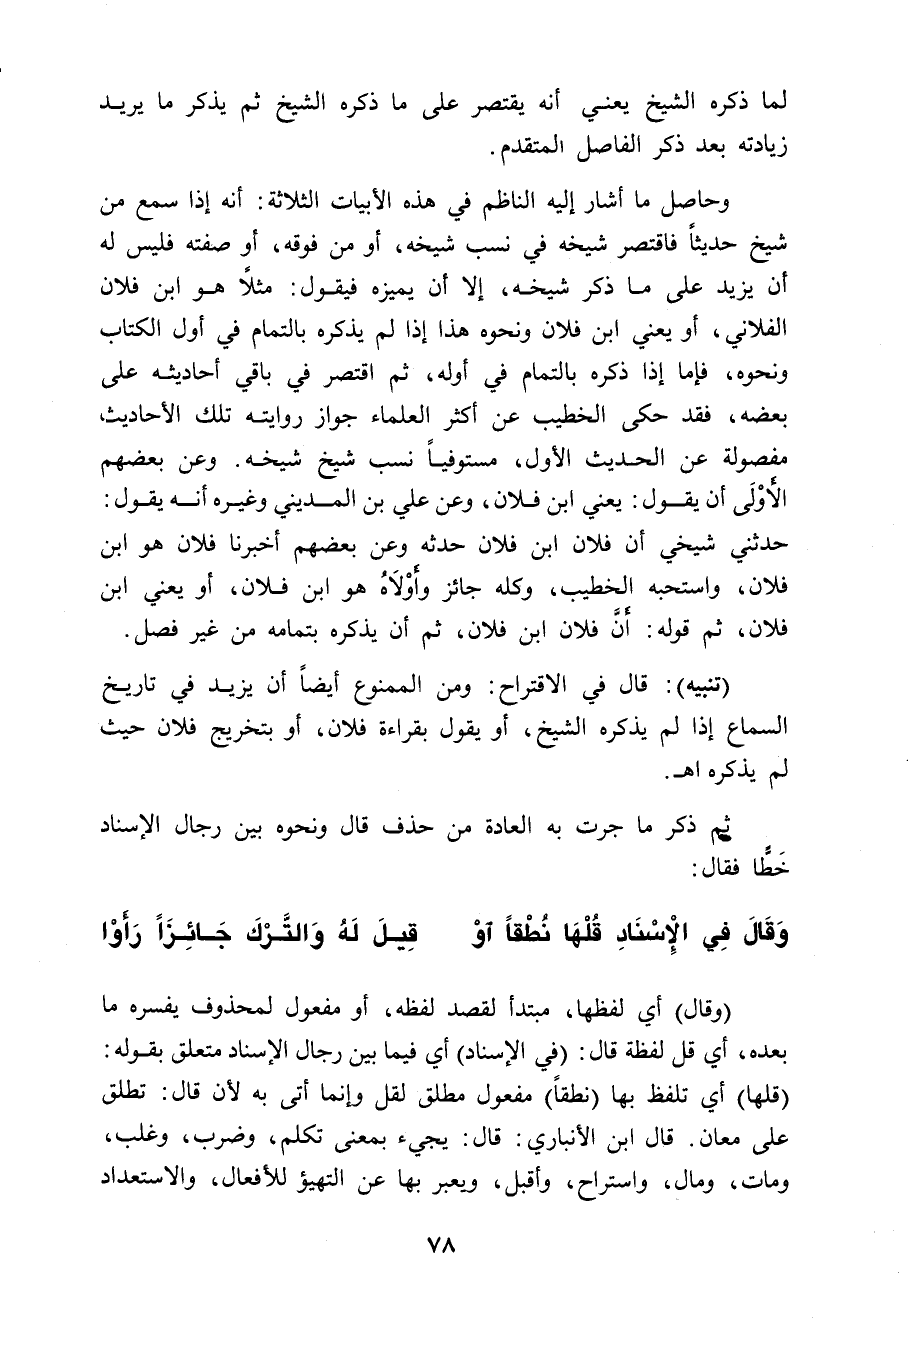 لما ذكره الشيخ يعني أنه يقتصر على ما ذكره الشيخ ثم يذكر ما يريد
زيادته بعد ذكر الفاصل المتقدم.
وحاصل ما أشار إليه الناظم في هذه الأبيات الثلاثة: أنه إذا سمع من
شيخ حديثاً فاقتصر شيخه في نسب شيخه، أو من فوقه، أو صفته فليس له
أن يزيد على ما ذكر شيخه، إلا أن يميزه فيقول: مثلًا هو ابن فلان
الفلاني، أو يعني ابن فلان ونحوه هذا إذا لم يذكره بالتمام في أول الكتاب
ونحوه، فإما إذا ذكره بالتمام في أوله، ثم اقتصر في باقي أحاديثه على
بعضه، فقد حكى الخطيب عن أكثر العلماء جواز روايته تلك الأحاديث،
مفصولة عن الحديث الأول، مستوفياً نسب شيخ شيخه. وعن بعضهم
الأَوْلَى أن يقول: يعني ابن فلان، وعن علي بن المديني وغيره أنه يقول:
حدثني شيخي أن فلان ابن فلان حدثه وعن بعضهم أخبرنا فلان هو ابن
فلان، واستحبه الخطيب، وكله جائز وأَوْلَاهُ هو ابن فلان، أو يعني ابن
فلان، ثم قوله: أَنَّ فلان ابن فلان، ثم أن يذكره بتمامه من غير فصل.
(تنبيه): قال في الاقتراح: ومن الممنوع أيضاً أن يزيد في تاريخ
السماع إذا لم يذكره الشيخ، أو يقول بقراءة فلان، أو بتخريج فلان حيث
لم يذكره اهـ.
ثم ذكر ما جرت به العادة من حذف قال ونحوه بين رجال الإسناد
خَطًّا فقال:
وَقَالَ فِي الإِسْنَادِ قُلْهَا نُطْقاً آوْ قِيلَ لَهُ وَالتَّرْكَ جَائِزَاً رَأَوْا
(وقال) أي لفظها، مبتدأ لقصد لفظه، أو مفعول لمحذوف يفسره ما
بعده، أي قل لفظة قال: (في الإسناد) أي فيما بين رجال الإسناد متعلق بقوله:
(قلها) أي تلفظ بها (نطقاً) مفعول مطلق لقل وإنما أتى به لأن قال: تطلق
على معان. قال ابن الأنباري: قال: يجيء بمعنى تكلم، وضرب، وغلب،
ومات، ومال، واستراح، وأقبل، ويعبر بها عن التهيؤ للأفعال، والاستعداد
٧٨